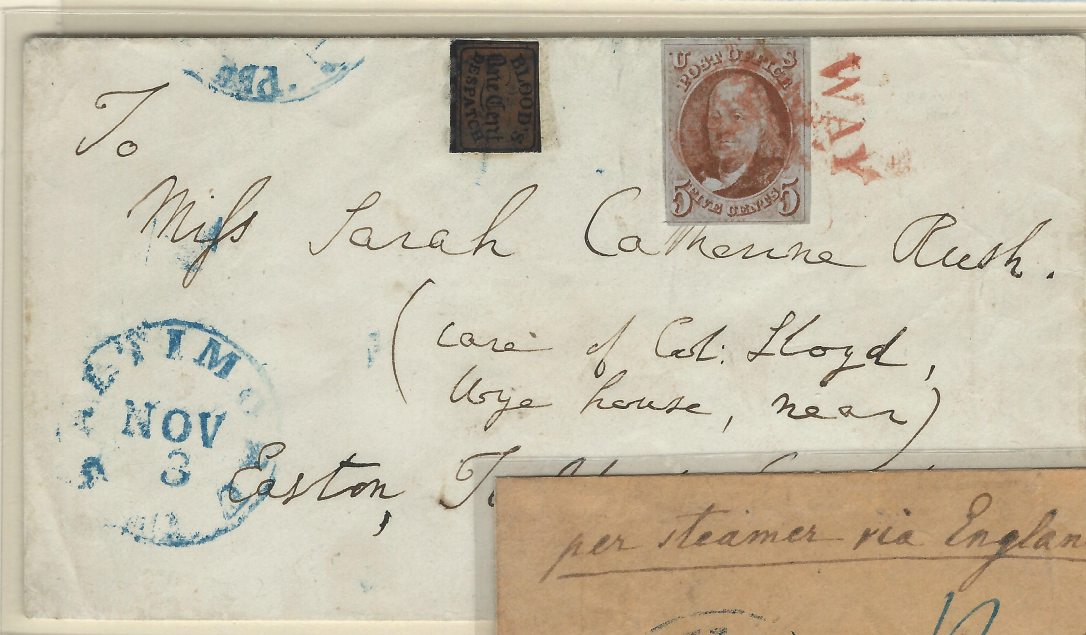 PBB
BLOOD'S
One Cent
DESPATCH
U S
POST OFFICE
5 FIVE CENTS 5
WAY
To
Miſs Sarah Catherine Rush.
(care of Col: Lloyd,
Wye house, near)
Easton,
BALTIMORE
NOV
3
MD
per steamer via Englan